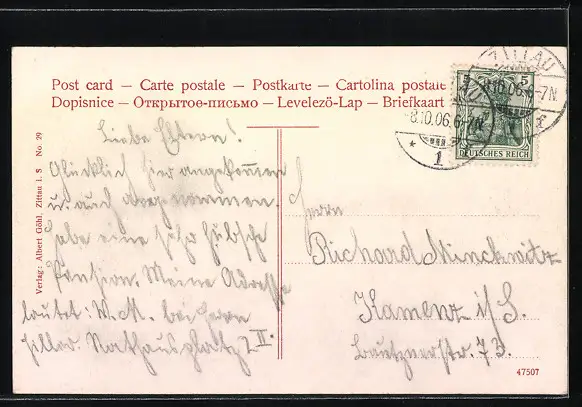 Post card – Carte postale – Postkarte – Cartolina postale
Dopisnice – Открытое-письмо – Levelező-Lap – Briefkaart
Verlag: Albert Göhl, Zittau i. S No. 29
ZITTAU
8.10.06.6-7N.
1
5
DEUTSCHES REICH
Liebe Eltern!
Glücklich hier angekommen
u. auch angenommen.
Habe eine sehr hübsche
Pension. Meine Adresse
lautet: W. M. bei Herrn
Hiller. Rathausplatz 2 II.
Herrn
Richard Minckwitz
Kamenz i/S.
Bautznerstr. 73.
47507